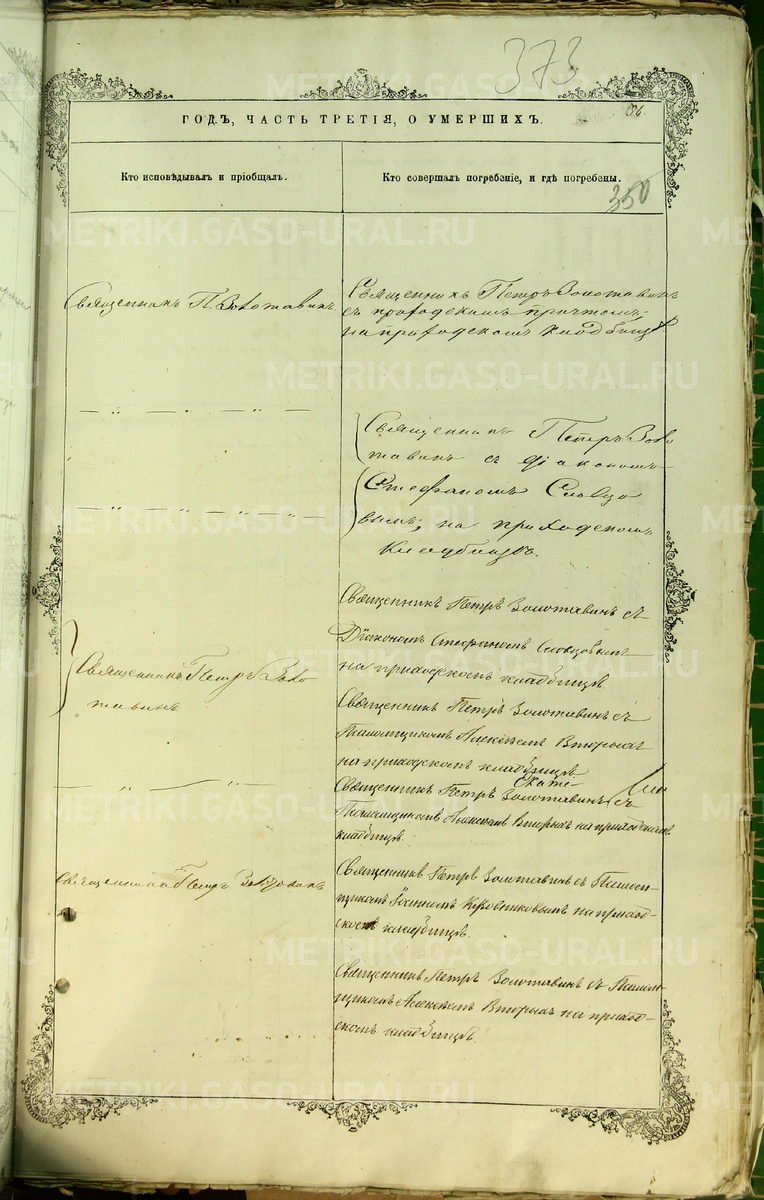 373
ГОДЪ, ЧАСТЬ ТРЕТІЯ, О УМЕРШИХЪ.
Кто исповѣдывалъ и пріобщалъ.
Кто совершалъ погребеніе, и гдѣ погребены.
350
Священникъ П. Золотавинъ
Священникъ Петръ Золотавинъ
съ приходскимъ причтомъ,
на приходскомъ кладбищѣ
— „ — „ —
Священникъ Петръ Золо
тавинъ съ діакономъ
Стефаномъ Словцо
вымъ, на приходскомъ
кладбищѣ.
— „ — „ — „ —
Священникъ Петръ Золотавинъ съ
Діакономъ Стефаномъ Словцовымъ
на приходскомъ кладбищѣ
Священникъ Петръ Золо
тавинъ
Священникъ Петръ Золотавинъ съ
Псаломщикомъ Алексѣемъ Вторыхъ
на приходскомъ кладбищѣ
— „ — „ —
Священникъ Петръ Золотавинъ съ
Псаломщикомъ Алексѣемъ Вторыхъ на приходскомъ
кладбищѣ.
Священникъ Петръ Золотавинъ
Священникъ Петръ Золотавинъ съ Псалом-
щикомъ Іоанномъ на приход-
скомъ кладбищѣ.
Священникъ Петръ Золотавинъ съ Псалом-
щикомъ Алексѣемъ Вторыхъ на приход-
скомъ кладбищѣ.
METRIKI.GASO-URAL.RU